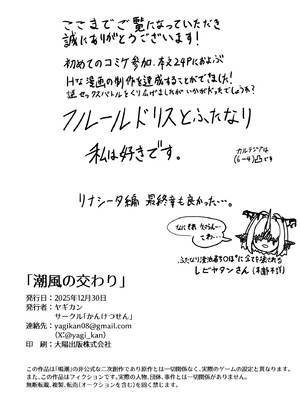 ここまでご覧になっていただき
誠にありがとうございます!
初めてのコミケ参加、本文24Pにおよぶ
Hな漫画の制作を達成することができました!
謎セックスバトルをくり広げましたがいかがだったでしょうか?
フルールドリスとふたなり
カルテジア4
(6-4)凸です
私は好きです。
リナシータ編 最終章も良かった…。
レビヤタンさん(年齢不詳)
「潮風の交わり」
発行日:2025年12月30日
発行者:ヤギカン
サークル「かんけつせん」
連絡先:yagikan08@gmail.com
(X:@yagi_kan)
印 刷:大陽出版株式会社
この作品は「鳴潮」の非公式な二次創作であり原作とは一切関係なく、実際のゲームの設定と異なります。
また、この作品はフィクションです。実際の人物、団体、事件とは一切関係がありません。
無断転載、複製、転売(オークションを含む)を固く禁じます。